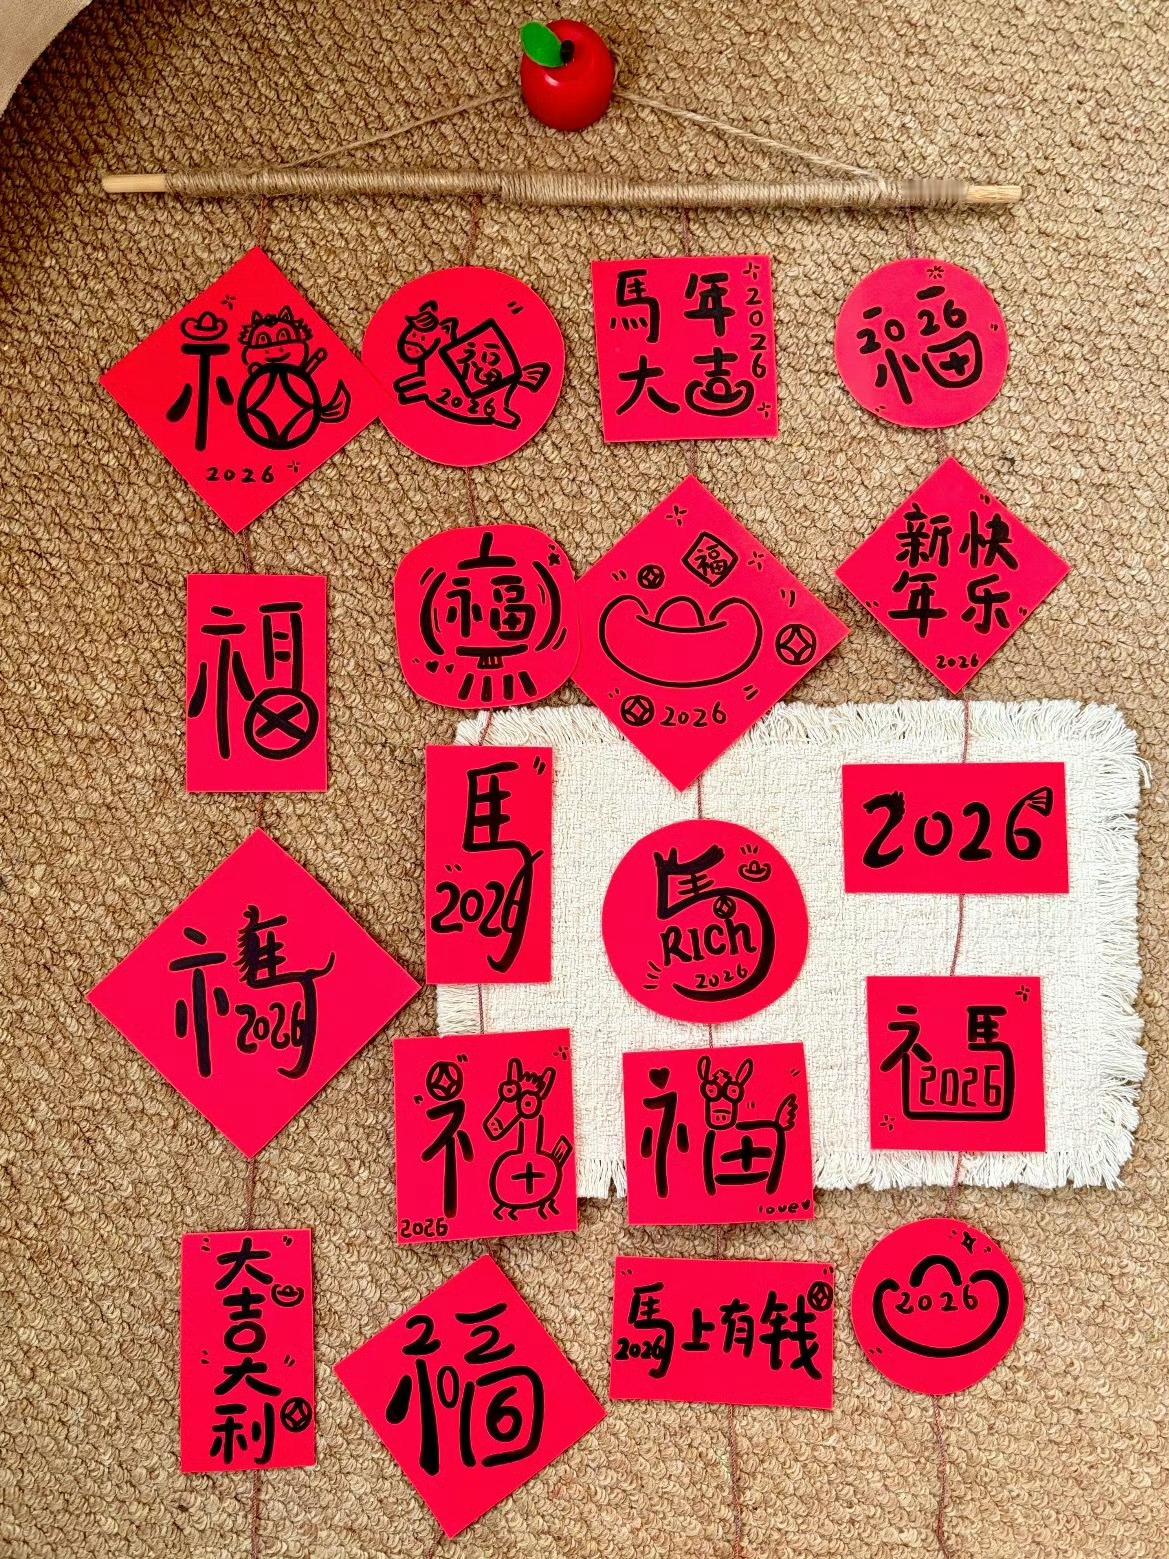 福
2026
福
2026
馬年
大吉
2026
2026
福
福
福
福
2026
新快
年乐
2026
福
2026
馬
2026
馬
RICh
2026
2026
福
2026
福
love
福
2026
大
吉
大
利
福
2026
馬上有钱
2026
2026